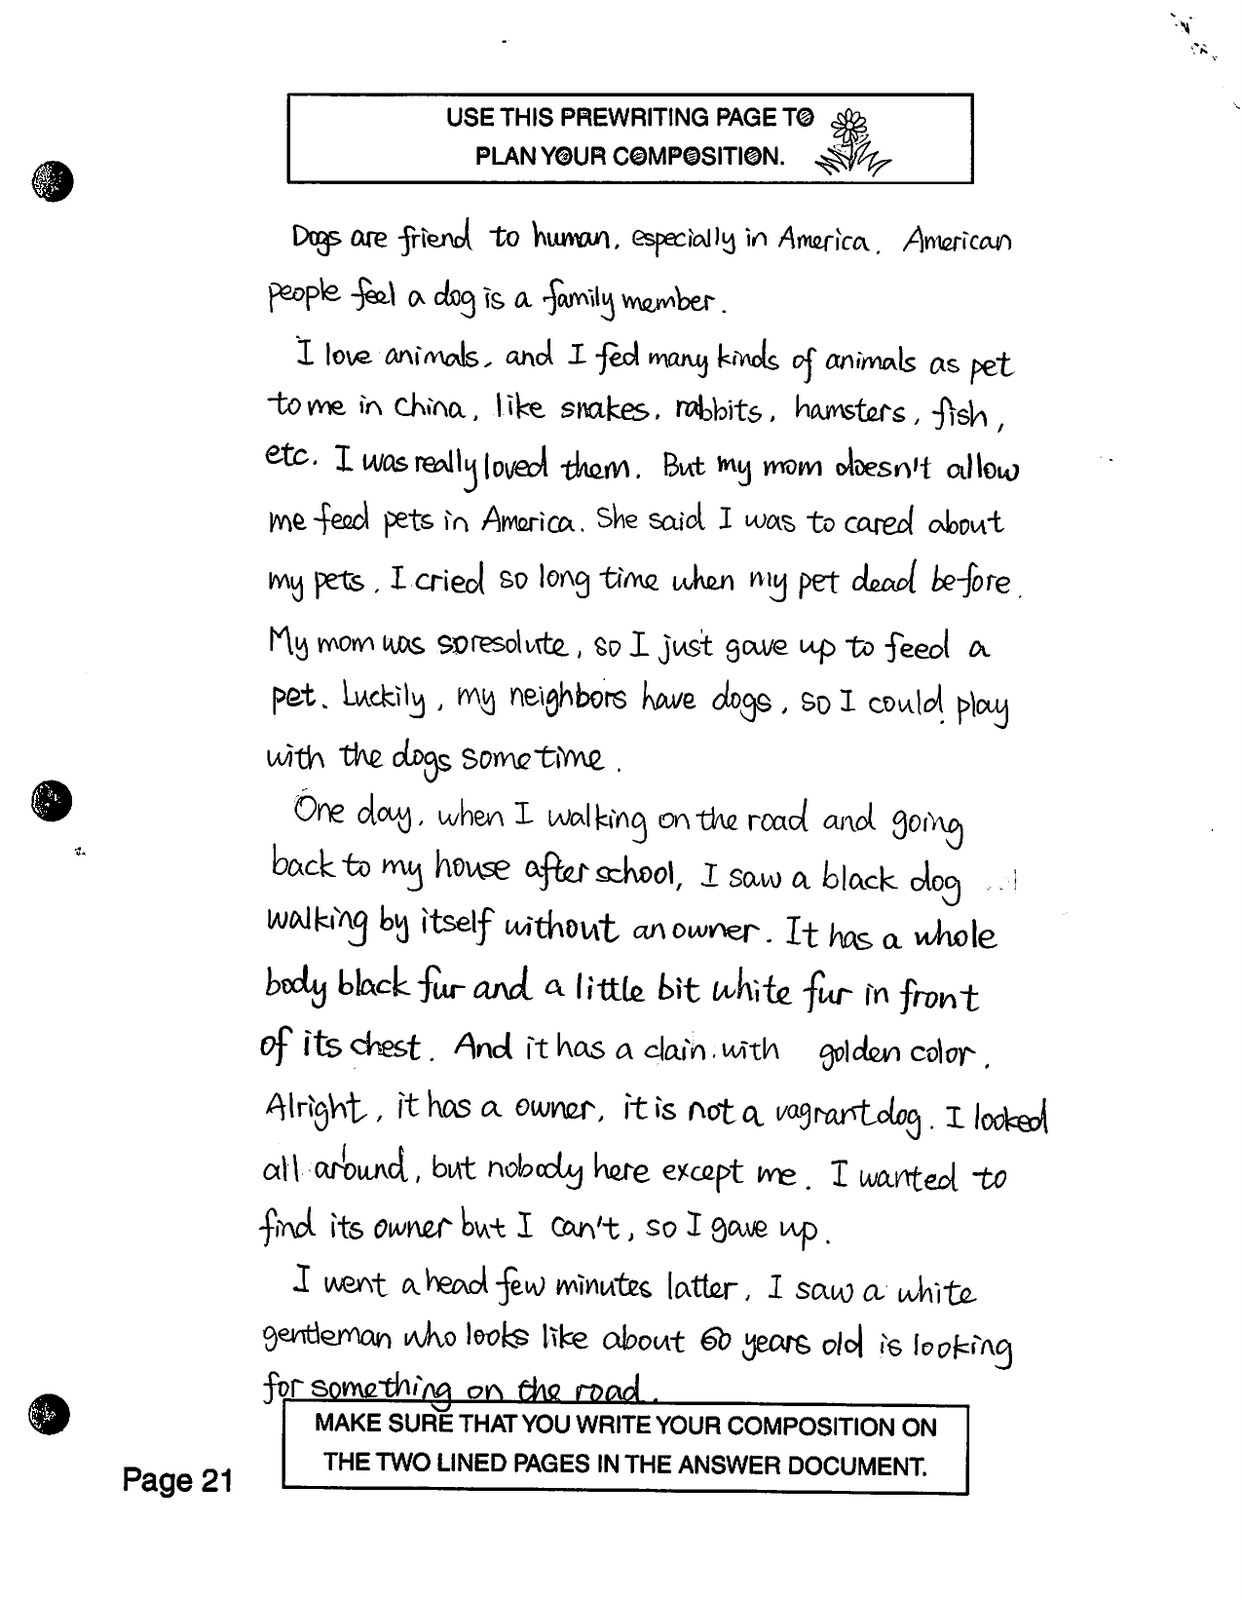 USE THIS PREWRITING PAGE TO
PLAN YOUR COMPOSITION.
Dogs are friend to human, especially in America. American
people feel a dog is a family member.
I love animals, and I fed many kinds of animals as pet
to me in China, like snakes, rabbits, hamsters, fish,
etc. I was really loved them. But my mom doesn't allow
me feed pets in America. She said I was to cared about
my pets. I cried so long time when my pet dead before.
My mom was so resolute, so I just gave up to feed a
pet. Luckily, my neighbors have dogs, so I could play
with the dogs sometime.
One day, when I walking on the road and going
back to my house after school, I saw a black dog
walking by itself without an owner. It has a whole
body black fur and a little bit white fur in front
of its chest. And it has a clain with golden color.
Alright, it has a owner, it is not a vagrant dog. I looked
all around, but nobody here except me. I wanted to
find its owner but I can't, so I gave up.
I went ahead few minutes latter, I saw a white
gentleman who looks like about 60 years old is looking
for something on the road.
MAKE SURE THAT YOU WRITE YOUR COMPOSITION ON
THE TWO LINED PAGES IN THE ANSWER DOCUMENT.
Page 21